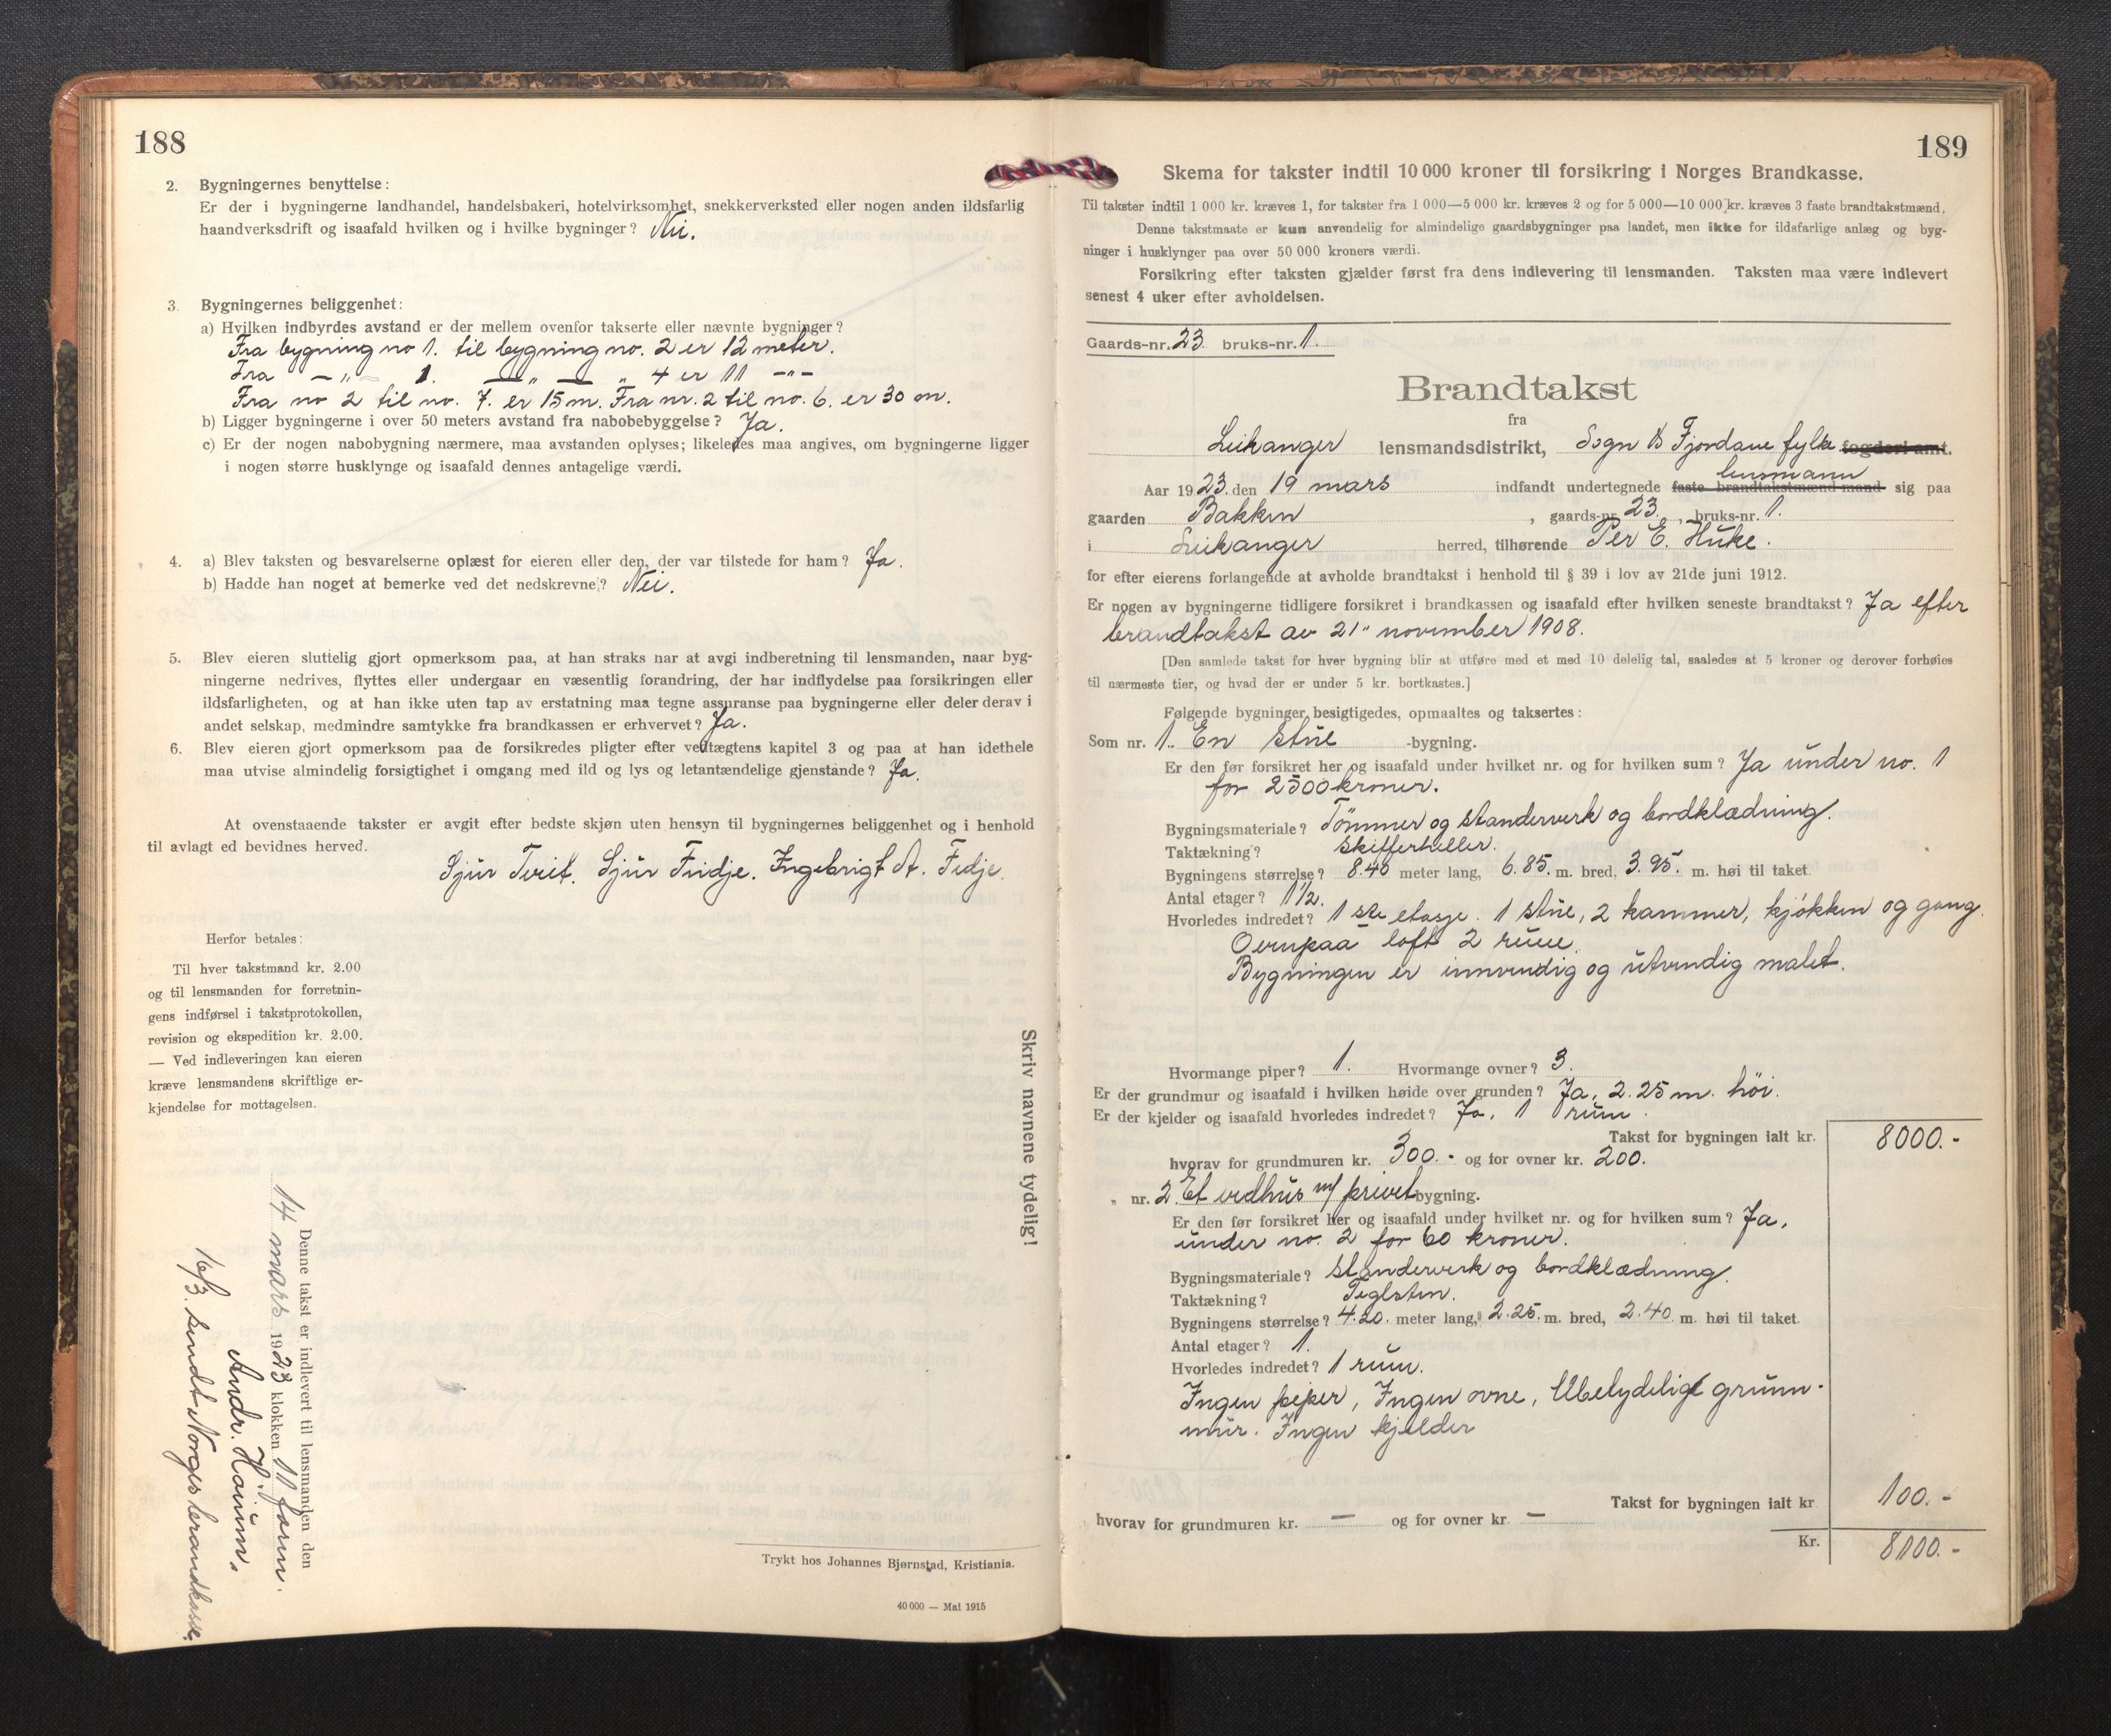 188
2. Bygningernes benyttelse:
Er der i bygningerne landhandel, handelsbakeri, hotelvirksomhet, snekkerverksted eller nogen anden ildsfarlig
haandverksdrift og isaafald hvilken og i hvilke bygninger? Nei.
3. Bygningernes beliggenhet:
a) Hvilken indbyrdes avstand er der mellem ovenfor takserte eller nævnte bygninger?
Fra bygning no 1. til bygning no. 2 er 12 meter.
Fra —"— 1. —"— " 4 er 11 —"—
Fra no 2 til no. 7. er 15 m. Fra nr. 2 til no. 6. er 30 m.
b) Ligger bygningerne i over 50 meters avstand fra nabobebyggelse? Ja.
c) Er der nogen nabobygning nærmere, maa avstanden oplyses; likeledes maa angives, om bygningerne ligger
i nogen større husklynge og isaafald dennes antagelige værdi.
4. a) Blev taksten og besvarelserne oplæst for eieren eller den, der var tilstede for ham? Ja.
b) Hadde han noget at bemerke ved det nedskrevne? Nei.
5. Blev eieren sluttelig gjort opmerksom paa, at han straks har at avgi indberetning til lensmanden, naar byg-
ningerne nedrives, flyttes eller undergaar en væsentlig forandring, der har indflydelse paa forsikringen eller
ildsfarligheten, og at han ikke uten tap av erstatning maa tegne assuranse paa bygningerne eller deler derav i
andet selskap, medmindre samtykke fra brandkassen er erhvervet? Ja.
6. Blev eieren gjort opmerksom paa de forsikredes pligter efter vedtægtens kapitel 3 og paa at han idethele
maa utvise almindelig forsigtighet i omgang med ild og lys og letantændelige gjenstande? Ja.
At ovenstaaende takster er avgit efter bedste skjøn uten hensyn til bygningernes beliggenhet og i henhold
til avlagt ed bevidnes herved.
Sjur Tveit. Sjur Fridje. Ingebrigt A. Fedje.
Herfor betales:
Til hver takstmand kr. 2.00
og til lensmanden for forretnin-
gens indførsel i takstprotokollen,
revision og ekspedition kr. 2.00.
— Ved indleveringen kan eieren
kræve lensmandens skriftlige er-
kjendelse for mottagelsen.
Skriv navnene tydelig!
Denne takst er indlevert til lensmanden den
14 mars 1923 klokken 11 form.
Andr. Hauum.
16/3. sendt Norges brandkasse.
Trykt hos Johannes Bjørnstad, Kristiania.
40 000 — Mai 1915
189
Skema for takster indtil 10 000 kroner til forsikring i Norges Brandkasse.
Til takster indtil 1 000 kr. kræves 1, for takster fra 1 000—5 000 kr. kræves 2 og for 5 000—10 000 kr. kræves 3 faste brandtakstmænd.
Denne takstmaate er kun anvendelig for almindelige gaardsbygninger paa landet, men ikke for ildsfarlige anlæg og byg-
ninger i husklynger paa over 50 000 kroners værdi.
Forsikring efter taksten gjælder først fra dens indlevering til lensmanden. Taksten maa være indlevert
senest 4 uker efter avholdelsen.
Gaards-nr. 23. bruks-nr. 1.
Brandtakst
fra
Leikanger lensmandsdistrikt, Sogn & Fjordane fylke fogderi amt.
lensmann
Aar 1923. den 19 mars indfandt undertegnede faste brandtakstmænd mand sig paa
gaarden Bakken, gaards-nr. 23., bruks-nr. 1.
i Leikanger herred, tilhørende Per E. Huke.
for efter eierens forlangende at avholde brandtakst i henhold til § 39 i lov av 21de juni 1912.
Er nogen av bygningerne tidligere forsikret i brandkassen og isaafald efter hvilken seneste brandtakst? Ja efter
brandtakst av 21" november 1908.
[Den samlede takst for hver bygning blir at utføre med et med 10 delelig tal, saaledes at 5 kroner og derover forhøies
til nærmeste tier, og hvad der er under 5 kr. bortkastes.]
Følgende bygninger besigtigedes, opmaaltes og taksertes:
Som nr. 1. En stue -bygning.
Er den før forsikret her og isaafald under hvilket nr. og for hvilken sum? Ja under no. 1
for 2500 kroner.
Bygningsmateriale? Tømmer og standerverk og bordklædning.
Taktækning? Skifferheller.
Bygningens størrelse? 8.40 meter lang, 6.85. m. bred, 3.95. m. høi til taket.
Antal etager? 1 1/2.
Hvorledes indredet? 1ste etasje. 1 stue, 2 kammer, kjøkken og gang.
Ovenpaa loft 2 rum.
Bygningen er innvendig og utvendig malet.
Hvormange piper? 1. Hvormange ovner? 3.
Er der grundmur og isaafald i hvilken høide over grunden? Ja, 2.25 m. höi.
Er der kjelder og isaafald hvorledes indredet? Ja, 1 rum.
Takst for bygningen ialt kr. 8000.-
hvorav for grundmuren kr. 300.- og for ovner kr. 200.
" nr. 2. Et vedhus m/ privet bygning.
Er den før forsikret her og isaafald under hvilket nr. og for hvilken sum? Ja,
under no. 2 for 60 kroner.
Bygningsmateriale? Standerverk og bordklædning.
Taktækning? Teglsten.
Bygningens størrelse? 4.20. meter lang, 2.25. m. bred, 2.40. m. høi til taket.
Antal etager? 1.
Hvorledes indredet? 1 rum.
Ingen peper, Ingen ovne, Ubetydelig grunn-
mur. Ingen kjelder
Takst for bygningen ialt kr 100.-
hvorav for grundmuren kr. — og for ovner kr. —
Kr. 8100.-